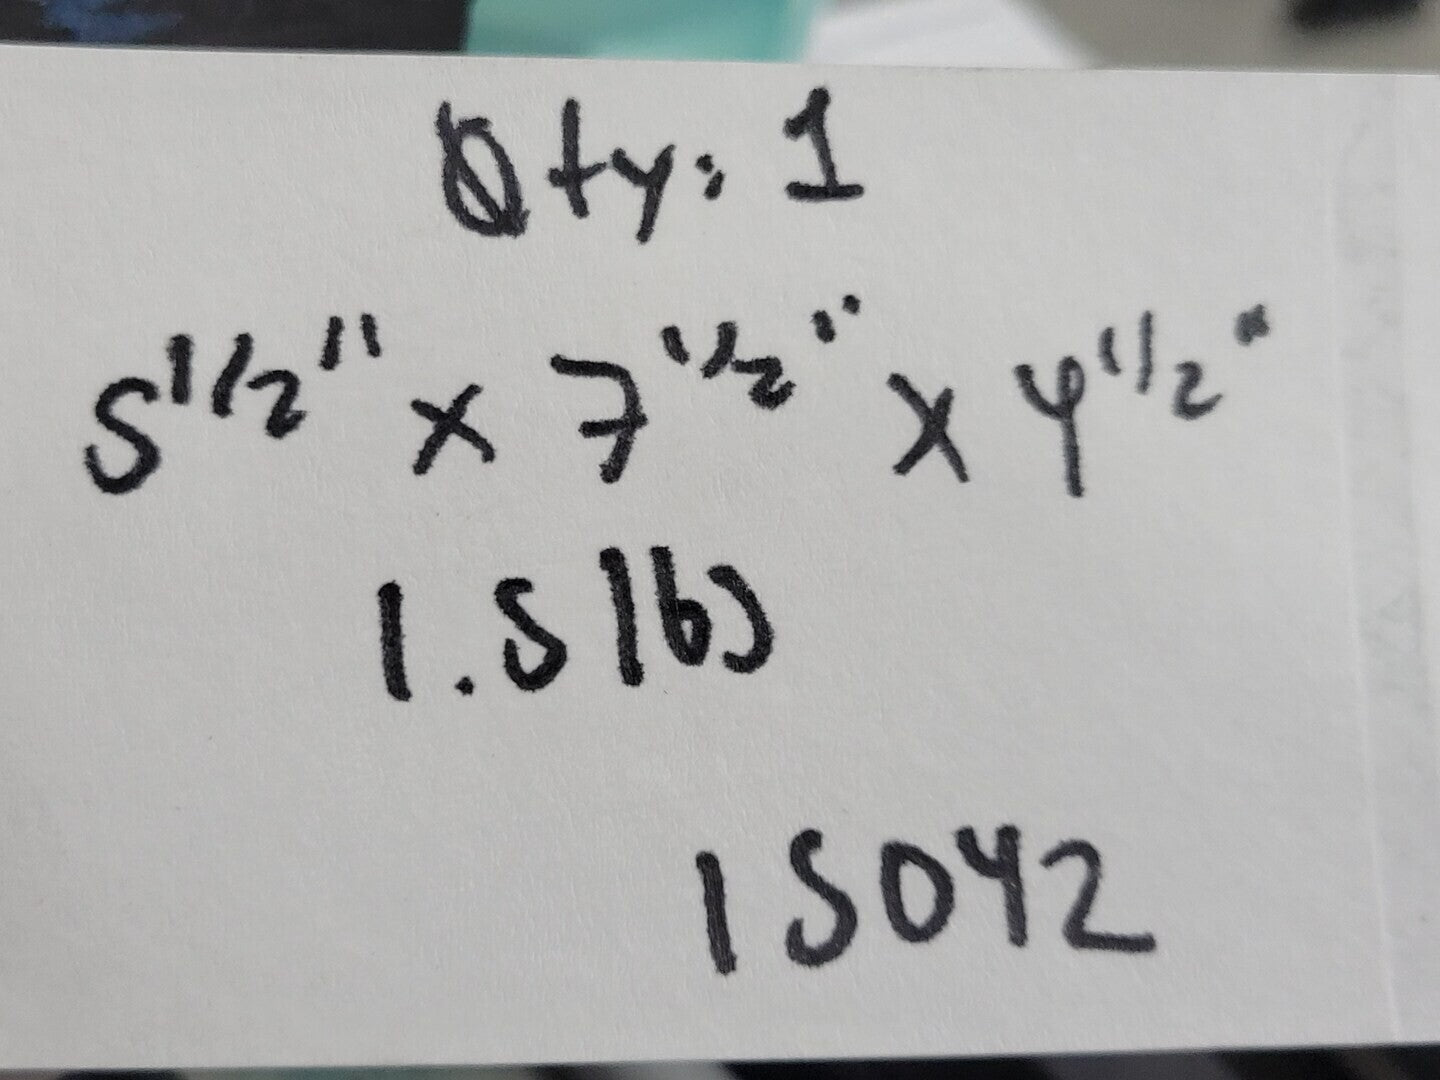 Qty: 1
5 1/2" x 7 1/2" x 4 1/2"
1.5 lbs
15042